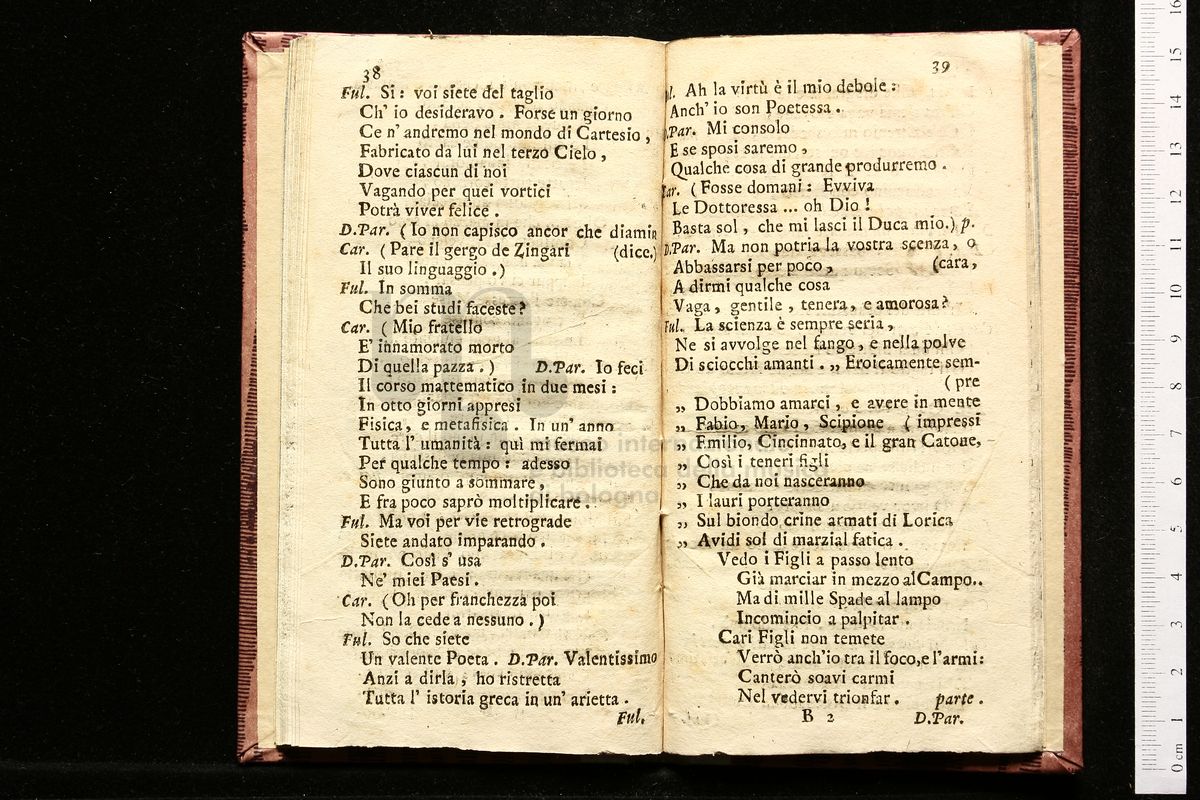 38
Ful. Sì: voi siete del taglio
Ch' io desideravo. Forse un giorno
Ce n' andremo nel mondo di Cartesio,
Fabricato da lui nel terzo Cielo,
Dove ciascun di noi
Vagando per quei vortici
Potrà viver felice.
D.Par. (Io non capisco ancor che diamin
Car. (Pare il gergo de Zingari (dice.)
Il suo linguaggio.)
Ful. In somma
Che bei studi faceste?
Car. (Mio fratello
E' innamorato morto
Di quella pazza.) D.Par. Io feci
Il corso mattematico in due mesi:
In otto giorni appresi
Fisica, e metafisica. In un' anno
Tutta l' umanità: quì mi fermai
Per qualche tempo: adesso
Sono giunto a sommare,
E fra poco saprò moltiplicare.
Ful. Ma voi per vie retrograde
Siete andato imparando.
D.Par. Così s' usa
Ne' miei Paesi.
Car. (Oh per franchezza poi
Non la cede a nessuno.)
Ful. So che siete
Un valente Poeta. D.Par. Valentissimo
Anzi a dirla, ho ristretta
Tutta l' istoria greca in un' arietta.
Ful.
39
ul. Ah la virtù è il mio debole:
Anch' io son Poetessa.
D.Par. Mi consolo
E se sposi saremo,
Qualche cosa di grande produrremo.
Car. (Fosse domani: Evviva
Le Dottoressa ... oh Dio!
Basta sol, che mi lasci il Duca mio.) p.
D.Par. Ma non potria la vostra scenza, o
Abbassarsi per poco, (cara,
A dirmi qualche cosa
Vaga, gentile, tenera, e amorosa?
Ful. La scienza è sempre seria,
Ne si avvolge nel fango, e nella polve
Di sciocchi amanti. „ Eroicamente sem-
(pre
„ Dobbiamo amarci, e avere in mente
„ Fabio, Mario, Scipione (impressi
„ Emilio, Cincinnato, e il gran Catone,
„ Così i teneri figli
„ Che da noi nasceranno
„ I lauri porteranno
„ Sul biondo crine armati di Lorica
„ Avidi sol di marzial fatica.
Vedo i Figli a passo lento
Già marciar in mezzo al Campo..
Ma di mille Spade al lampo
Incomincio a palpitar.
Cari Figli non temete
Verrò anch'io tra il foco,e l'armi:
Canterò soavi carmi
Nel vedervi trionfar. parte.
B 2 D.Par.